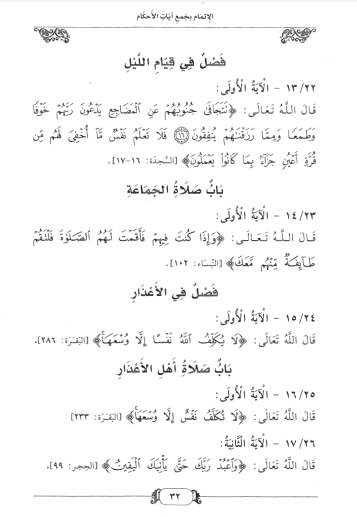 الإتمام بجمع آيات الأحكام
فَصْلٌ فِي قِيَامِ اللَّيْلِ
١٣/٢٢ - الْآيَةُ الْأُولَى:
قَالَ اللَّهُ تَعَالَى: ﴿تَتَجَافَى جُنُوبُهُمْ عَنِ الْمَضَاجِعِ يَدْعُونَ رَبَّهُمْ خَوْفًا
وَطَمَعًا وَمِمَّا رَزَقْنَاهُمْ يُنفِقُونَ ١٦ فَلَا تَعْلَمُ نَفْسٌ مَّا أُخْفِيَ لَهُم مِّن
قُرَّةِ أَعْيُنٍ جَزَاءً بِمَا كَانُوا يَعْمَلُونَ﴾ [السَّجْدَة: ١٦-١٧].
بَابُ صَلَاةِ الْجَمَاعَةِ
١٤/٢٣ - الْآيَةُ الْأُولَى:
قَالَ اللَّهُ تَعَالَى: ﴿وَإِذَا كُنتَ فِيهِمْ فَأَقَمْتَ لَهُمُ الصَّلَوٰةَ فَلْتَقُمْ
طَائِفَةٌ مِّنْهُم مَّعَكَ﴾ [النِّسَاء: ١٠٢].
فَصْلٌ فِي الْأَعْذَارِ
١٥/٢٤ - الْآيَةُ الْأُولَى:
قَالَ اللَّهُ تَعَالَى: ﴿لَا يُكَلِّفُ اللَّهُ نَفْسًا إِلَّا وُسْعَهَا﴾ [البَقَرَة: ٢٨٦].
بَابُ صَلَاةِ أَهْلِ الْأَعْذَارِ
١٦/٢٥ - الْآيَةُ الْأُولَى:
قَالَ اللَّهُ تَعَالَى: ﴿لَا تُكَلَّفُ نَفْسٌ إِلَّا وُسْعَهَا﴾ [البَقَرَة: ٢٣٣]
١٧/٢٦ - الْآيَةُ الثَّانِيَةُ:
قَالَ اللَّهُ تَعَالَى: ﴿وَاعْبُدْ رَبَّكَ حَتَّى يَأْتِيَكَ الْيَقِينُ﴾ [الحِجر: ٩٩].
٣٢